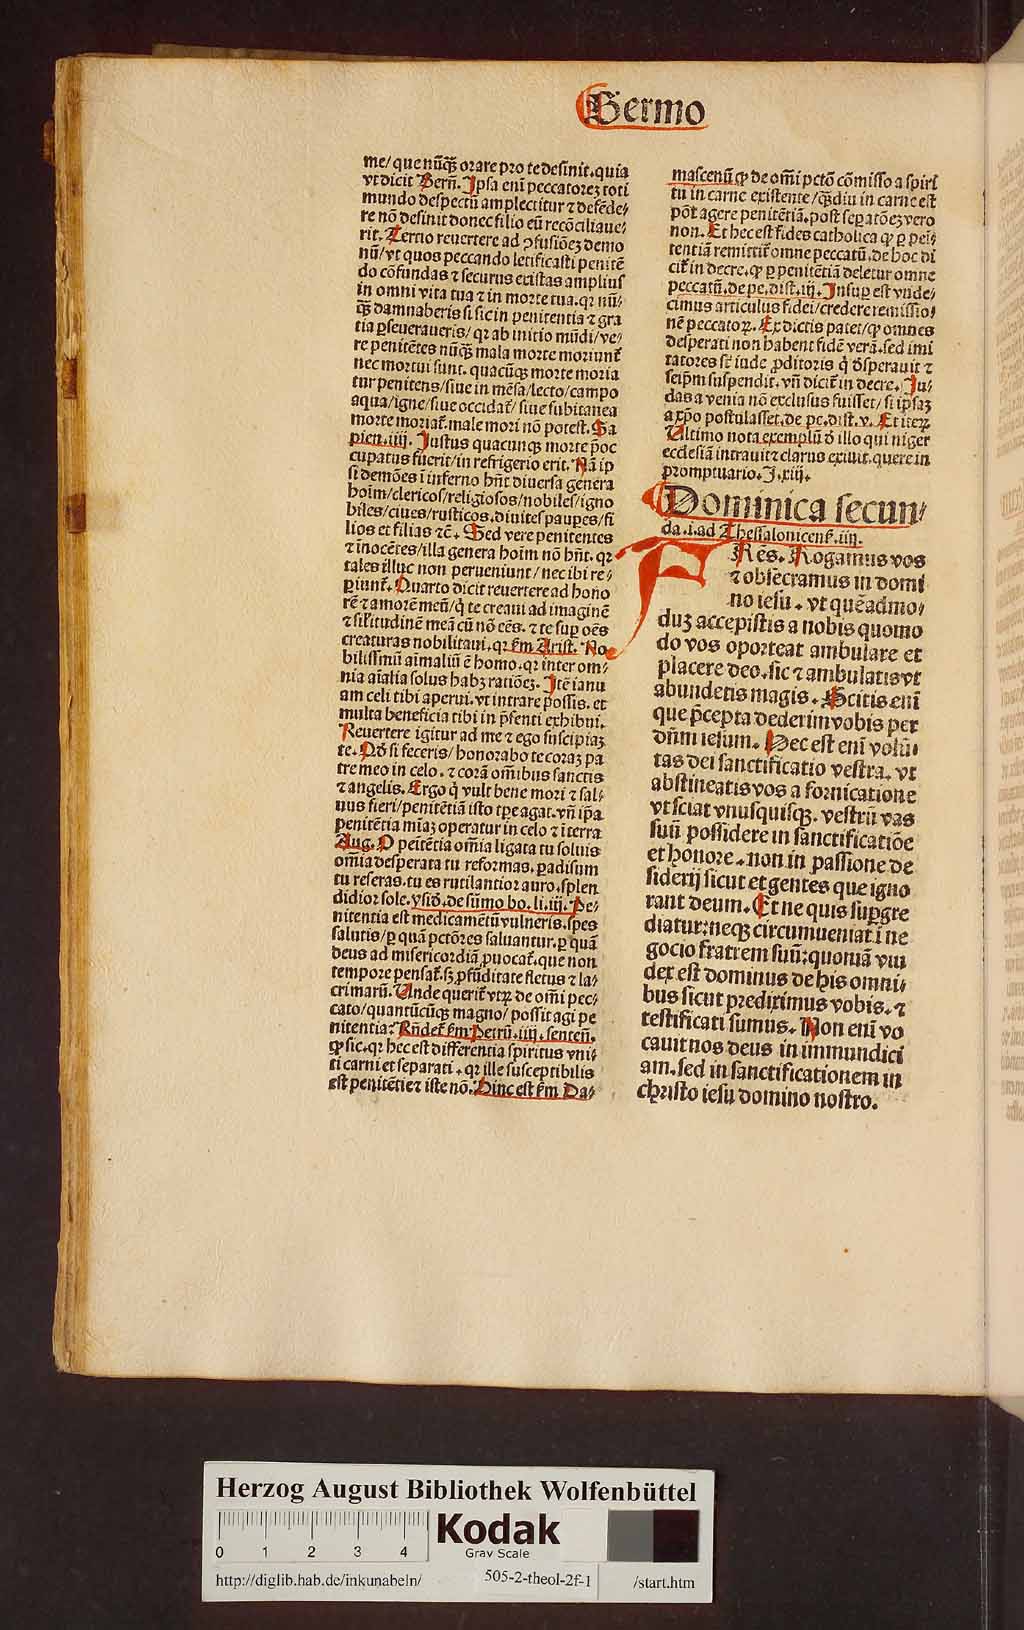 Sermo
me/ que nūq̄ꝫ orare pro te desinit. quia
vt dicit Bern̄. Ipsa eni peccatoreꝫ toti
mundo despectū amplectitur ⁊ defēde/
re nō desinit donec filio eū recōciliaue/
rit. Tertio reuertere ad ꝯfusiōeꝫ demo
nū/ vt quos peccando letificasti penitē
do cōfundas ⁊ securus existas amplius
in omni vita tua ⁊ in morte tua. qꝛ nū/
q̄ꝫ damnaberis si sic in penitentia ⁊ gra
tia ꝑseueraueris/ qꝛ ab initio mūdi/ ve/
re penitētes nūq̄ꝫ mala morte moriunt̄
nec mortui sunt. quacūqꝫ morte moria
tur penitens/ siue in mēsa/ lecto/ campo
aqua/ igne/ siue occidat̄/ siue subitanea
morte moriat̄. male mori nō potest. Sa
pien. iiij. Iustus quacunqꝫ morte p̄oc
cupatus fuerit/ in refrigerio erit. Nā ip
si demōes ī inferno hn̄t diuersa genera
hoim/ clericos/ religiosos/ nobiles/ igno
biles/ ciues/ rusticos. diuites paupes/ fi
lios et filias ⁊c̄. Sed vere penitentes
⁊ īnocētes/ illa genera hoim nō hn̄t. qꝛ
tales illuc non perueniunt/ nec ibi re/
ꝑiunt̄. Quarto dicit reuertere ad hono
rē ⁊ amorē meū/ q̇ te creaui ad imaginē
⁊ sil̄itudinē meā cū nō eēs. ⁊ te suꝑ oēs
creaturas nobilitaui. qꝛ ẜm Arist. No
bilissimū aīmaliū ē homo. qꝛ inter om/
nia aīalia solus habꝫ ratiōeꝫ. Itē ianu
am celi tibi aperui. vt intrare possis. et
multa beneficia tibi in p̄senti exhibui.
Reuertere igitur ad me ⁊ ego suscipiaꝫ
te. Qd̄ si feceris/ honorabo te coraꝫ pa
tre meo in celo. ⁊ corā om̄ibus sanctis
⁊ angelis. Ergo q̇ vult bene mori ⁊ sal/
uus fieri/ penitētiā isto tꝑe agat. vn̄ ip̄a
penitētia miaꝫ operatur in celo ⁊ ī terra
Aug. O peītētia om̄ia ligata tu soluis
om̄ia desperata tu reformas. ꝑadisum
tu reseras. tu es rutilantior auro. splen
didior sole. ysid̄. de sūmo bo. li. iij. Pe/
nitentia est medicamētū vulneris. spes
salutis/ ꝑ quā pctōres saluantur. ꝑ quā
deus ad misericordiā ꝓuocat̄. que non
tempore pensat̄. sꝫ ꝓfūditate fletus ⁊ la/
crimarū. Unde querit̄ vtꝝ de om̄i pec/
cato/ quantūcūqꝫ magno/ possit agi pe
nitentia? Rn̄det̄ ẜm Petrū. iiij. senten̄.
ꝙ sic. qꝛ hec est differentia spiritus vni/
ti carni et separati. qꝛ ille susceptibilis
est penitētie ⁊ iste nō. Hinc est ẜm Da/
mascenū ꝙ de om̄i pctō cōmisso a spiri
tu in carne existente/ q̄ꝫdiu in carne est
pōt agere penitētiā. post seꝑatōeꝫ vero
non. Et hec est fides catholica ꝙ ꝑ peni/
tentiā remittit̄ omne peccatū. de hoc di
cit̄ in decre. ꝙ ꝑ penitētiā deletur omne
peccatū. de pe. dist. iij. Insuꝑ est vnde/
cimus articulus fidei/ credere remissio/
nē peccatoꝝ. Ex dictis patet/ ꝙ omnes
desperati non habent fidē verā. sed imi
tatores st̄ iude ꝓditoris q̇ d̄sperauit ⁊
seip̄m suspendit. vn̄ dicit̄ in decre. Iu/
das a venia nō exclusus fuisset/ si ipsaꝫ
a xp̄o postulasset. de pe. dist. v. Et iteꝝ
Ultimo nota exemplū d̄ illo qui niger
ecclesiā intrauit ⁊ clarus exiuit. quere in
promptuario. I. xiij.
Dominica secun/
da .i. ad Thessalonicen̄. iiij.
FRēs. Rogamus vos
⁊ obsecramus in domi
no iesu. vt quēadmo/
duꝫ accepistis a nobis quomo
do vos oporteat ambulare et
placere deo. sic ⁊ ambuletis vt
abundetis magis. Scitis eni
que p̄cepta dederim vobis per
dn̄m iesum. Hec est eni volū/
tas dei sanctificatio vestra. vt
abstineatis vos a fornicatione
vt sciat vnusquisqꝫ. vestrū vas
suū possidere in sanctificatiōe
et honore. non in passione de
siderij sicut et gentes que igno
rant deum. Et ne quis suꝑgre
diatur: neqꝫ circumueniat ī ne
gocio fratrem suū: quoniā vin
dex est dominus de his omni/
bus sicut prediximus vobis. ⁊
testificati sumus. Non eni vo
cauit nos deus in immundici
am. sed in sanctificationem in
christo iesu domino nostro.
Herzog August Bibliothek Wolfenbüttel
0 1 2 3 4
Kodak
Gray Scale
http://diglib.hab.de/inkunabeln/ 505-2-theol-2f-1 /start.htm